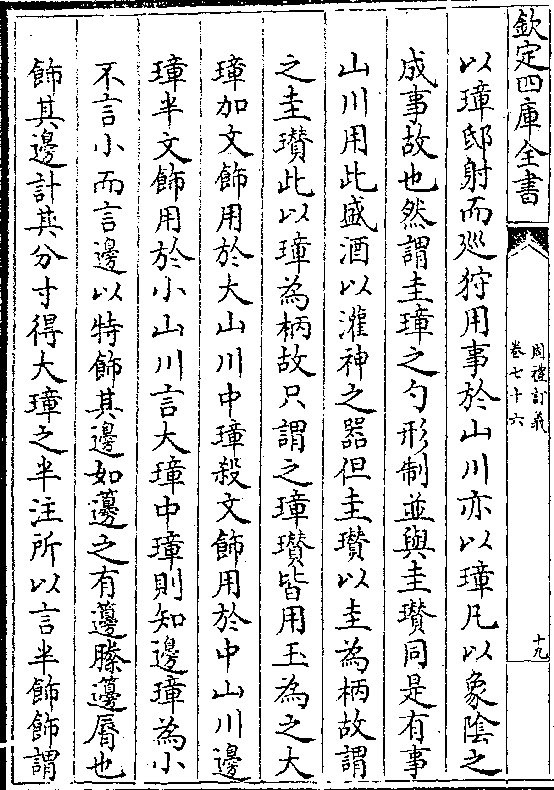 欽定四庫全書
周禮訂義
卷七十六
十九
以璋邸射而巡狩用事於山川亦以璋凡以象陰之
成事故也然謂圭璋之勺形制並與圭瓚同是有事
山川用此盛酒以灌神之器但圭瓚以圭為柄故謂
之圭瓚此以璋為柄故只謂之璋瓚皆用玉為之大
璋加文飾用於大山川中璋殺文飾用於中山川邊
璋半文飾用於小山川言大璋中璋則知邊璋為小
不言小而言邊以特飾其邊如籩之有籩縢籩脣也
飾其邊計其分寸得大璋之半注所以言半飾飾謂